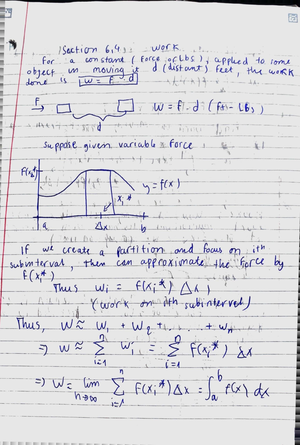 Section 6.4: Work
For a constant (force or Lbs), applied to some
object in moving it d (distant) feet, the work
done is W = F · d
F
W = F · d (Ft - Lbs)
d
suppose given variable force
F(xi*)
y = f(x)
xi*
a Δx b
If we create a partition and focus on ith
subinterval, then can approximate the force by
F(xi*)
Thus wi = F(xi*) Δx
(work on ith subinterval)
Thus, W ≈ W1 + W2 + . . . . + Wn
⇒ W ≈ Σ_{i=1}^{n} Wi = Σ_{i=1}^{n} F(xi*) Δx
⇒ W = lim_{n→∞} Σ_{i=1}^{n} F(xi*) Δx = ∫_a^b f(x) dx